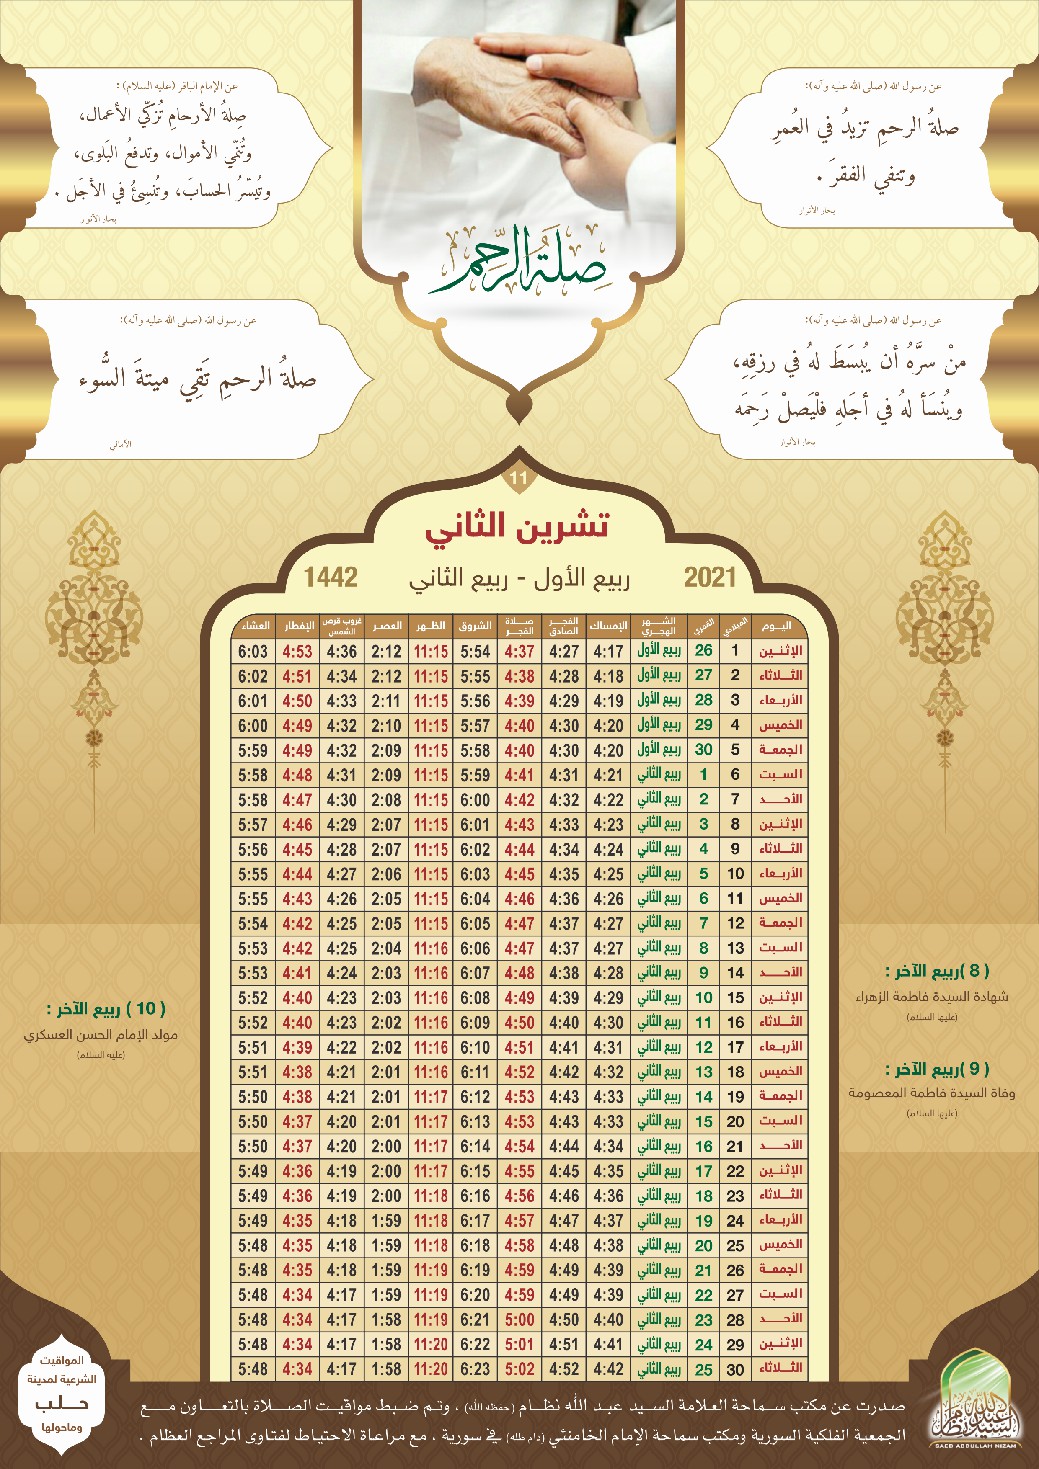 عن رسول الله (صلى الله عليه وآله):
صلةُ الرحمِ تزيدُ في العُمرِ
وتنفي الفقرَ .
بحار الأنوار
عن الإمام الباقر (عليه السلام) :
صِلةُ الأرحامِ تُزكّي الأعمال،
وتُنمّي الأموال، وتدفعُ البَلوى،
وتُيسّرُ الحسابَ، وتُنسِئُ في الأجَل .
بحار الأنوار
صِلَةُ الرَّحِم
عن رسول الله (صلى الله عليه وآله):
منْ سرَّهُ أن يُبسَطَ لهُ في رزقِهِ،
ويُنسَأ لهُ في أجَلهِ فلْيَصلْ رَحِمَه
بحار الأنوار
عن رسول الله (صلى الله عليه وآله):
صلةُ الرحمِ تَقِي ميتةَ السُّوء
الأمالي
11
تشرين الثاني
2021 ربيع الأول - ربيع الثاني 1442
اليـوم الميلادي القمري الشـــهر الهجري الإمساك الفجـــر الصادق صـــلاة الفجـر الشروق الظـهر العصر غروب قرص الشمس الإفطار العشاء
الإثنـين 1 26 ربيع الأول 4:17 4:27 4:37 5:54 11:15 2:12 4:36 4:53 6:03
الثـلاثاء 2 27 ربيع الأول 4:18 4:28 4:38 5:55 11:15 2:12 4:34 4:51 6:02
الأربـعاء 3 28 ربيع الأول 4:19 4:29 4:39 5:56 11:15 2:11 4:33 4:50 6:01
الخميس 4 29 ربيع الأول 4:20 4:30 4:40 5:57 11:15 2:10 4:32 4:49 6:00
الجمعـة 5 30 ربيع الأول 4:20 4:30 4:40 5:58 11:15 2:09 4:32 4:49 5:59
السـبت 6 1 ربيع الثاني 4:21 4:31 4:41 5:59 11:15 2:09 4:31 4:48 5:58
الأحـــد 7 2 ربيع الثاني 4:22 4:32 4:42 6:00 11:15 2:08 4:30 4:47 5:58
الإثنـين 8 3 ربيع الثاني 4:23 4:33 4:43 6:01 11:15 2:07 4:29 4:46 5:57
الثـلاثاء 9 4 ربيع الثاني 4:24 4:34 4:44 6:02 11:15 2:07 4:28 4:45 5:56
الأربـعاء 10 5 ربيع الثاني 4:25 4:35 4:45 6:03 11:15 2:06 4:27 4:44 5:55
الخميس 11 6 ربيع الثاني 4:26 4:36 4:46 6:04 11:15 2:05 4:26 4:43 5:55
الجمعـة 12 7 ربيع الثاني 4:27 4:37 4:47 6:05 11:15 2:05 4:25 4:42 5:54
السـبت 13 8 ربيع الثاني 4:27 4:37 4:47 6:06 11:16 2:04 4:25 4:42 5:53
الأحـــد 14 9 ربيع الثاني 4:28 4:38 4:48 6:07 11:16 2:03 4:24 4:41 5:53
الإثنـين 15 10 ربيع الثاني 4:29 4:39 4:49 6:08 11:16 2:03 4:23 4:40 5:52
الثـلاثاء 16 11 ربيع الثاني 4:30 4:40 4:50 6:09 11:16 2:02 4:23 4:40 5:52
الأربـعاء 17 12 ربيع الثاني 4:31 4:41 4:51 6:10 11:16 2:02 4:22 4:39 5:51
الخميس 18 13 ربيع الثاني 4:32 4:42 4:52 6:11 11:16 2:01 4:21 4:38 5:51
الجمعـة 19 14 ربيع الثاني 4:33 4:43 4:53 6:12 11:17 2:01 4:21 4:38 5:50
السـبت 20 15 ربيع الثاني 4:33 4:43 4:53 6:13 11:17 2:01 4:20 4:37 5:50
الأحـــد 21 16 ربيع الثاني 4:34 4:44 4:54 6:14 11:17 2:00 4:20 4:37 5:50
الإثنـين 22 17 ربيع الثاني 4:35 4:45 4:55 6:15 11:17 2:00 4:19 4:36 5:49
الثـلاثاء 23 18 ربيع الثاني 4:36 4:46 4:56 6:16 11:18 2:00 4:19 4:36 5:49
الأربـعاء 24 19 ربيع الثاني 4:37 4:47 4:57 6:17 11:18 1:59 4:18 4:35 5:49
الخميس 25 20 ربيع الثاني 4:38 4:48 4:58 6:18 11:18 1:59 4:18 4:35 5:48
الجمعـة 26 21 ربيع الثاني 4:39 4:49 4:59 6:19 11:19 1:59 4:18 4:35 5:48
السـبت 27 22 ربيع الثاني 4:39 4:49 4:59 6:20 11:19 1:59 4:17 4:34 5:48
الأحـــد 28 23 ربيع الثاني 4:40 4:50 5:00 6:21 11:19 1:58 4:17 4:34 5:48
الإثنـين 29 24 ربيع الثاني 4:41 4:51 5:01 6:22 11:20 1:58 4:17 4:34 5:48
الثـلاثاء 30 25 ربيع الثاني 4:42 4:52 5:02 6:23 11:20 1:58 4:17 4:34 5:48
( 8 )ربيع الآخر :
شهادة السيدة فاطمة الزهراء
(عليها السلام)
( 9 )ربيع الآخر :
وفاة السيدة فاطمة المعصومة
(عليها السلام)
( 10 ) ربيع الآخر :
مولد الإمام الحسن العسكري
(عليه السلام)
المواقيت
الشرعية لمدينة
حـلـب
وماحولها
صدرت عن مكتب سماحة العلامة السيد عبد الله نظـام (حفظه الله) ، وتم ضبط مواقيت الصـلاة بالتعـاون مـع
الجمعية الفلكية السورية ومكتب سماحة الإمام الخامنئي (دام ظله) في سورية ، مع مراعاة الاحتياط لفتاوى المراجع العظام .
السيد عبدالله نظام
SAED ABDULLAH NIZAM